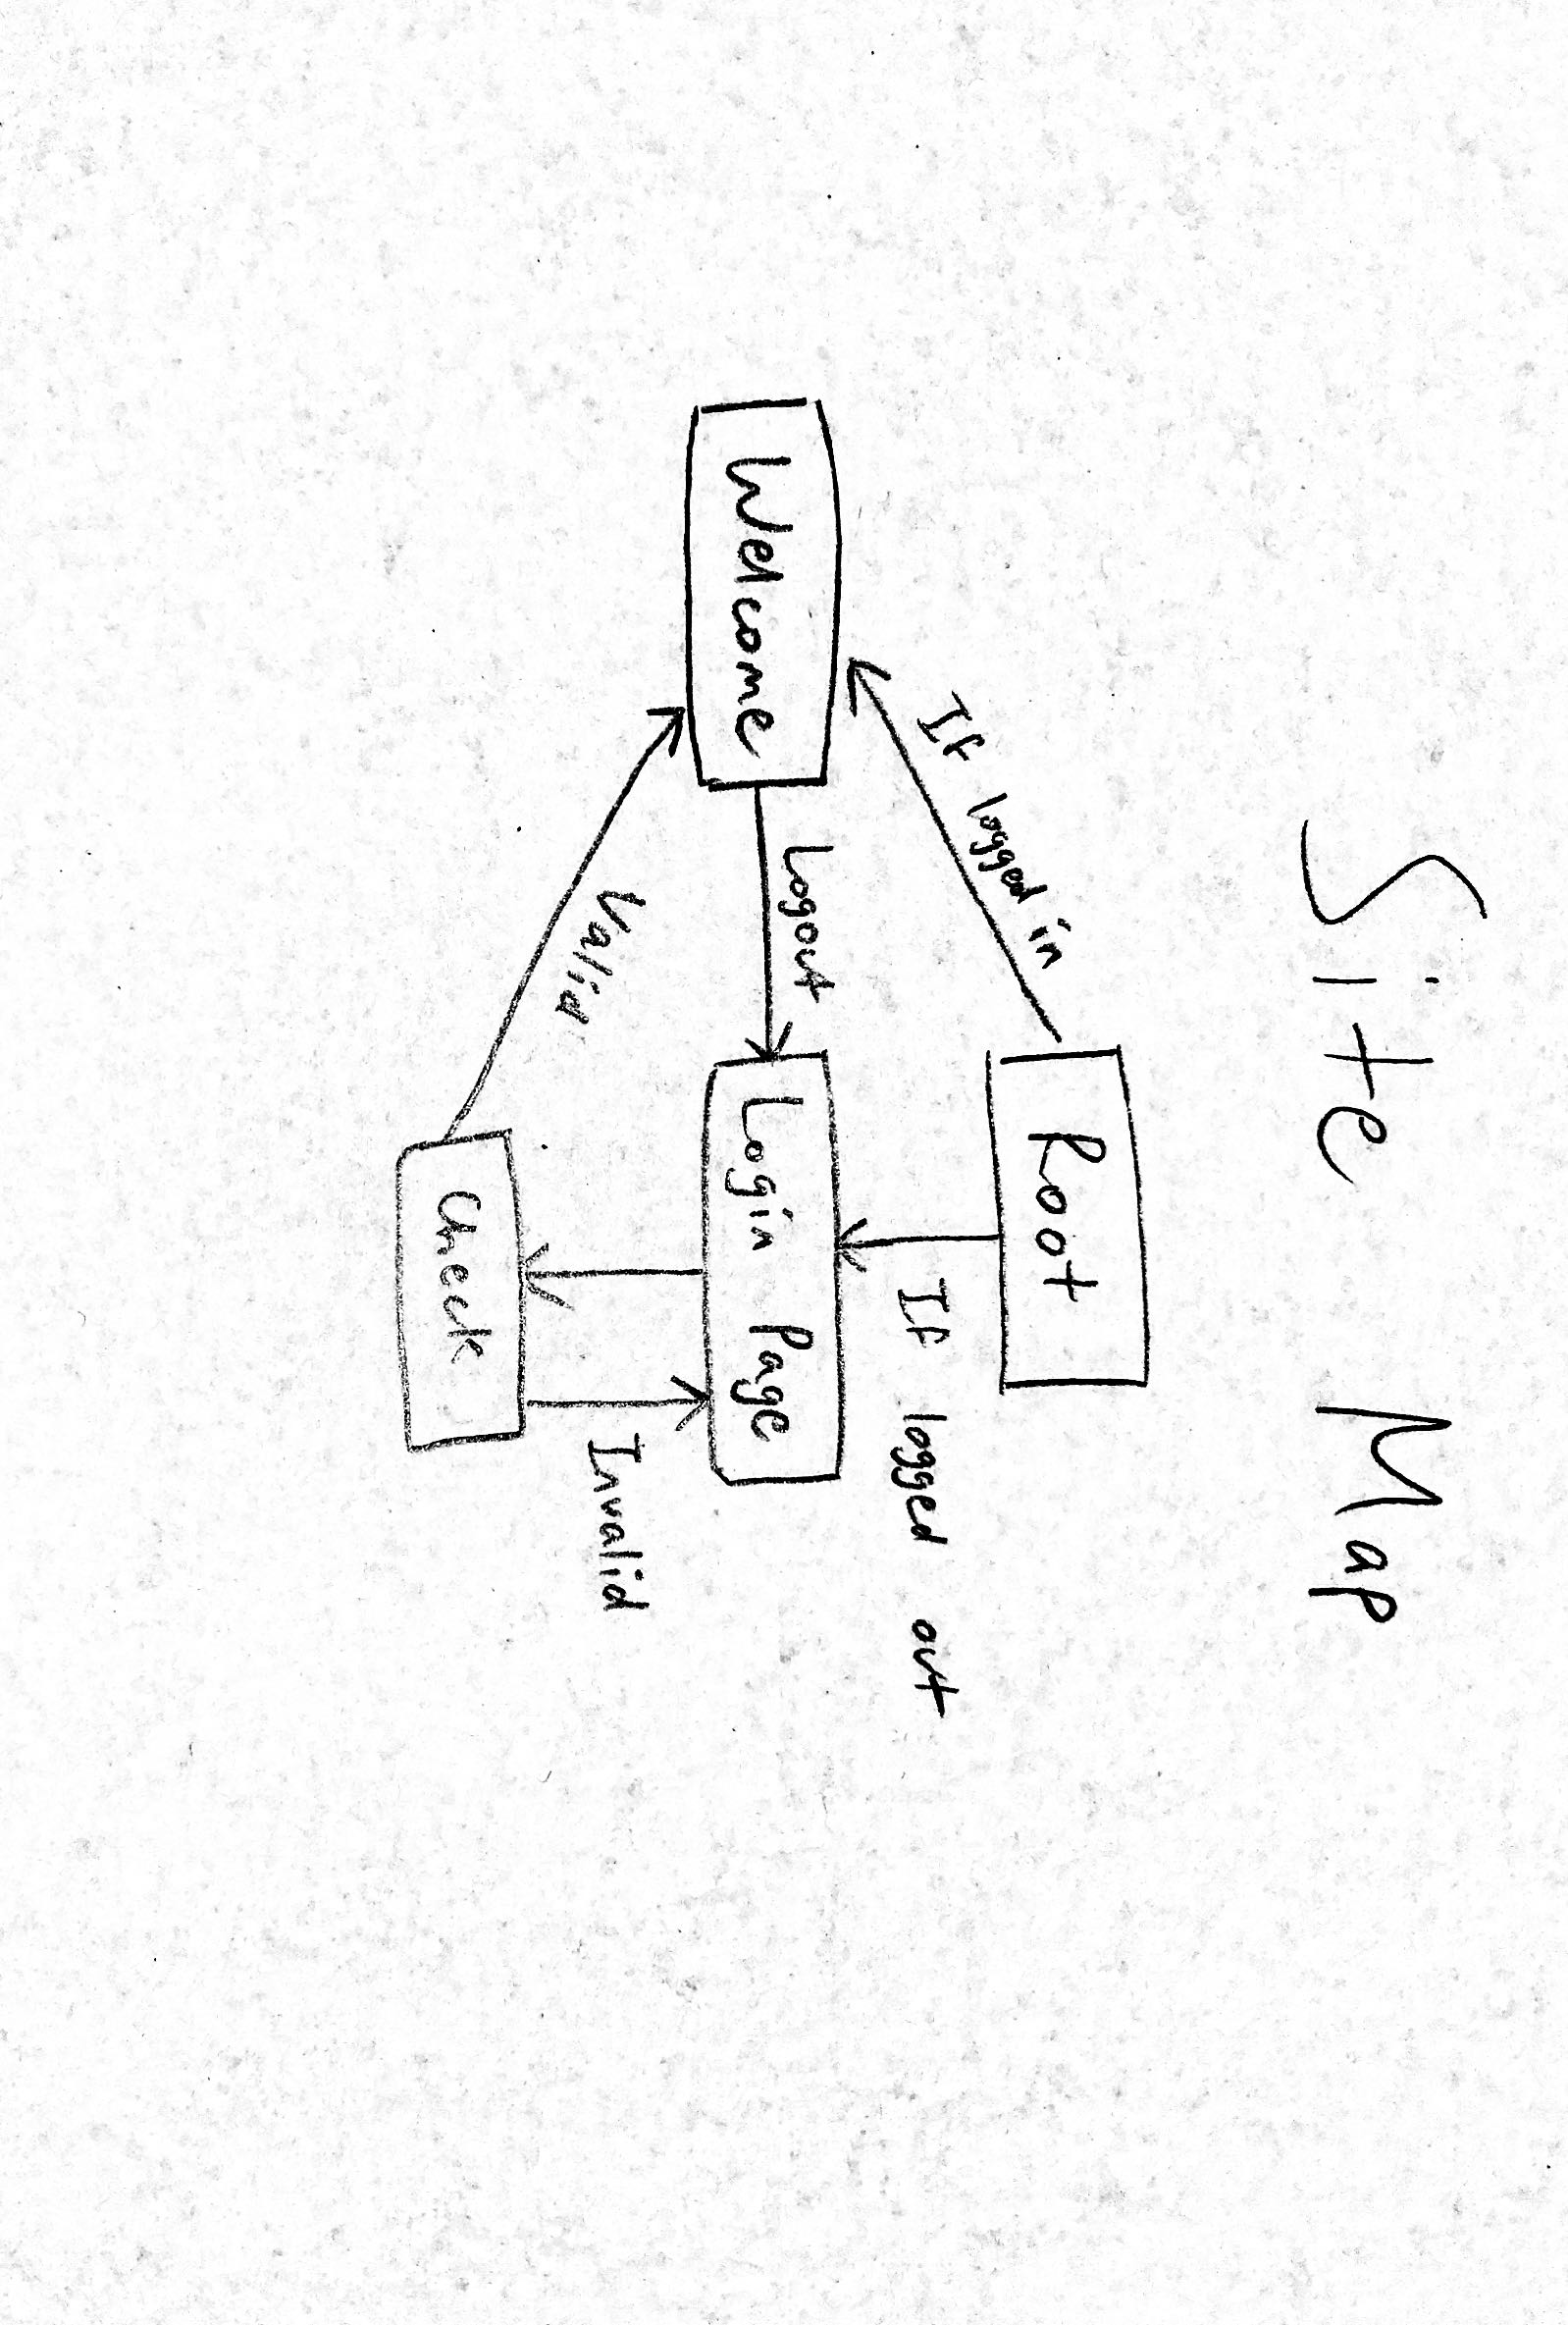 Site Map
Root
If logged in
If logged out
Welcome
Logout
Login Page
Valid
Invalid
Check